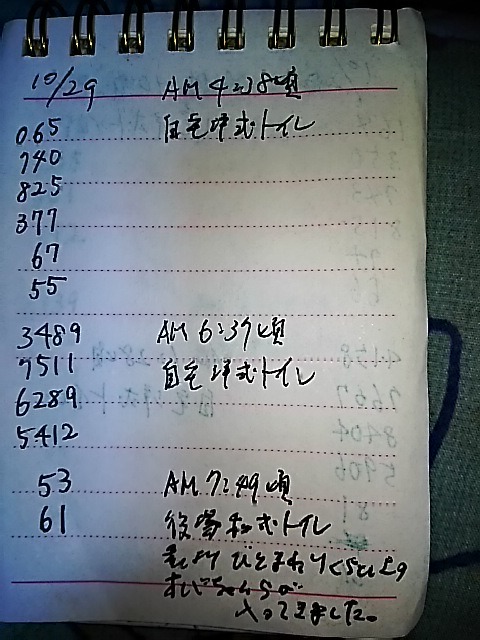 10/29 AM 4:38頃
065 自宅洋式トイレ
740
825
377
67
55
3489 AM 6:37頃
7511 自宅洋式トイレ
6289
5412
53 AM 7:49頃
61 役營和式トイレ
ひとまわりくらい上の
おじちゃんらが
入ってきました。